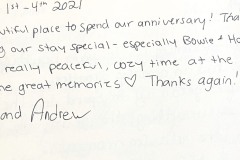 1st - 4th 2021
utiful place to spend our anniversary! Tha
g our stay special - especially Bowie + Ho
really peaceful, cozy time at the
e great memories ♡ Thanks again!
and Andrew